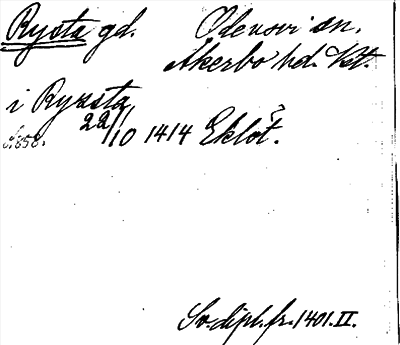 Rysta gd. Odensvi sn.
Åkerbo hd. Vt.
i Ryusta
22/10 1414 Eklöt.
s. 858.
Sv. dipl. fr. 1401. II.